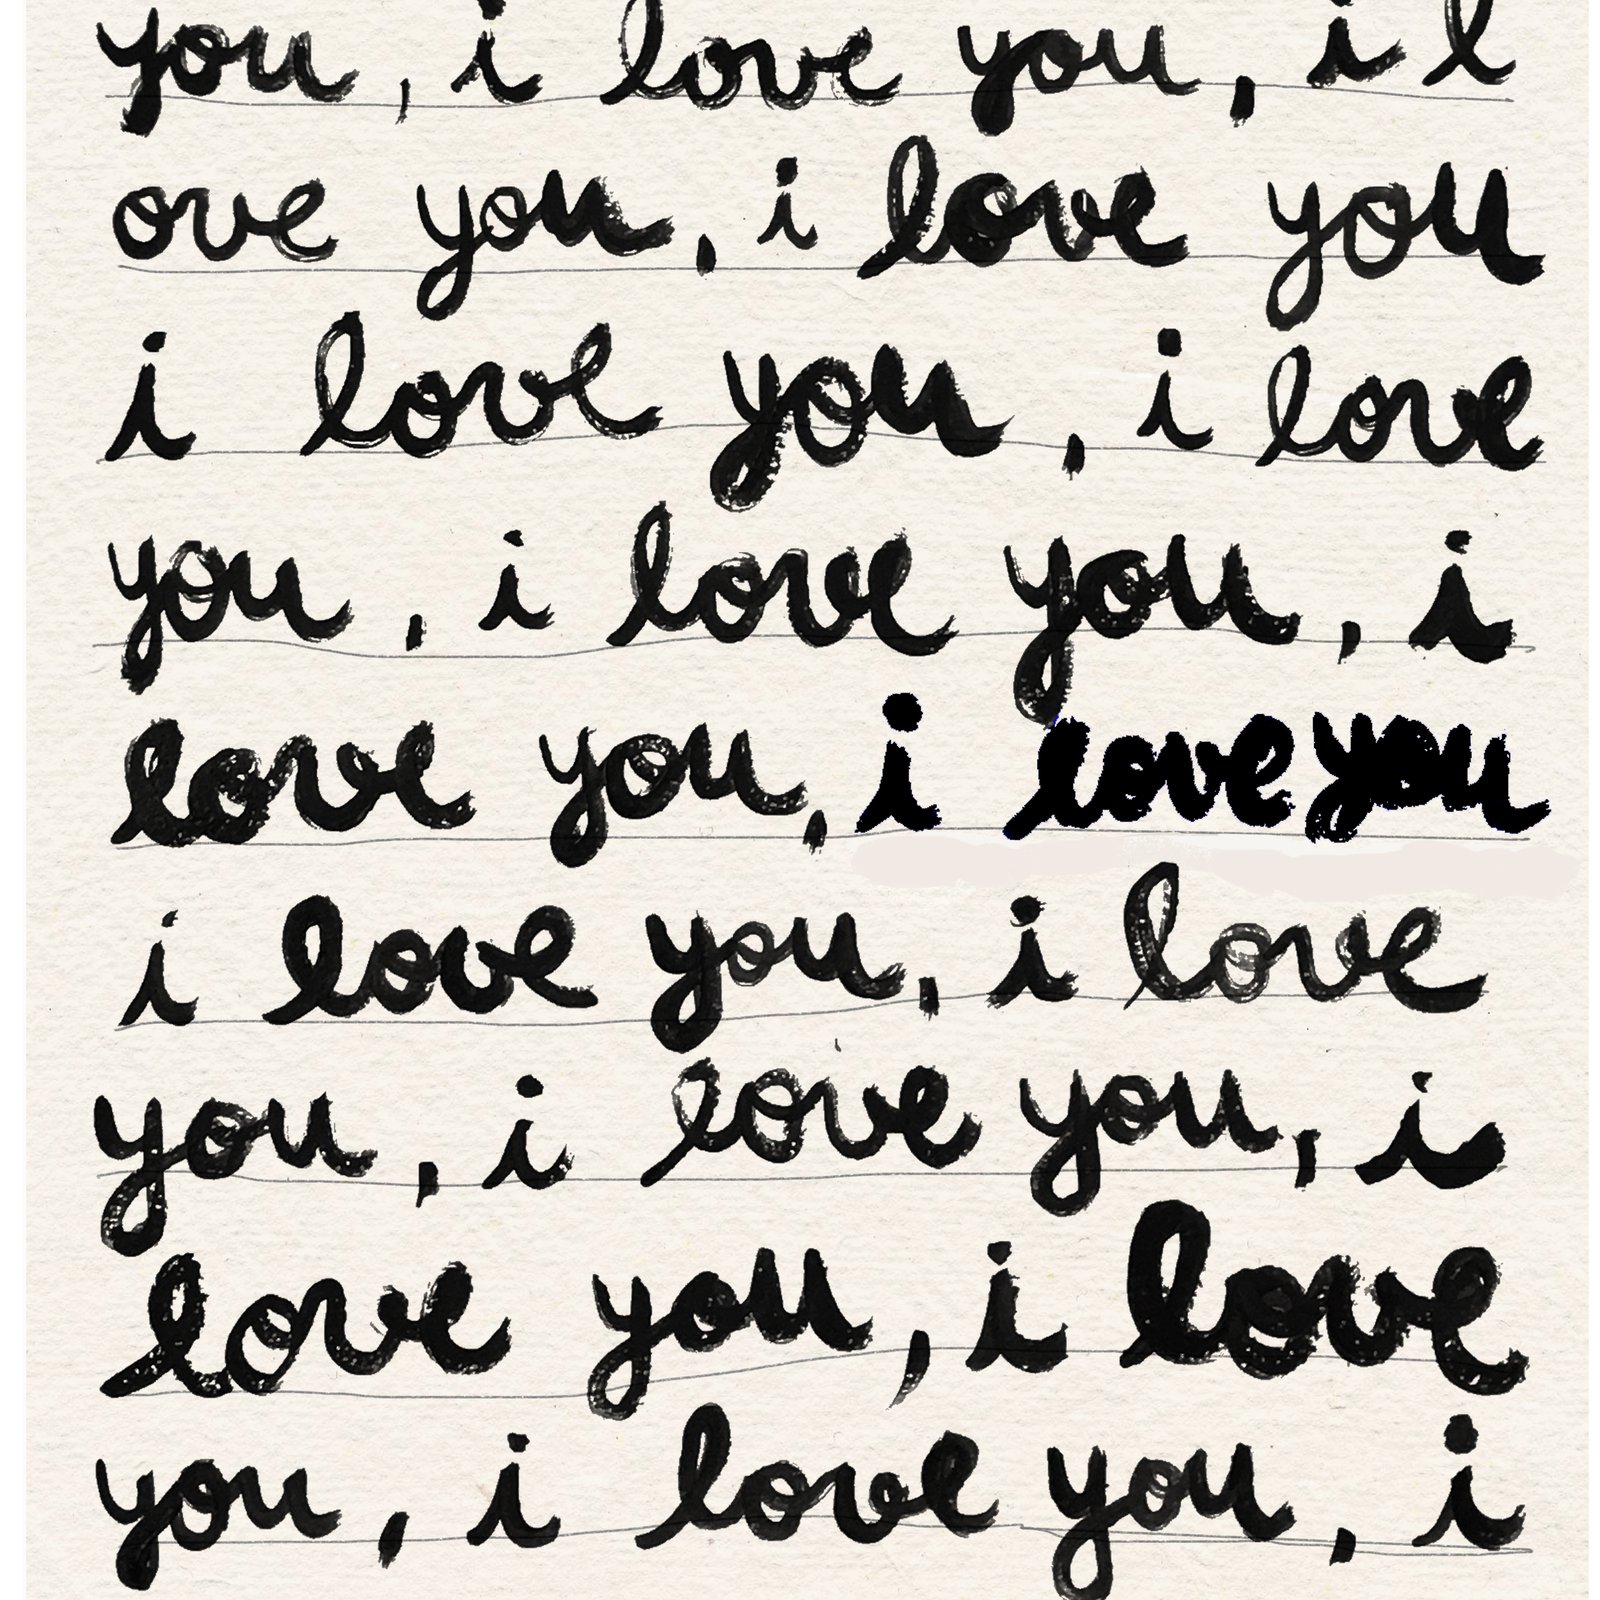 you, i love you, i l
ove you, i love you
i love you, i love
you, i love you, i
love you, i love you
i love you, i love
you, i love you, i
love you, i love
you, i love you, i